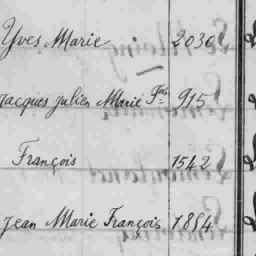 Yves Marie 2036
Jacques Julien Marie Fois 915
François 1542
Jean Marie François 1884